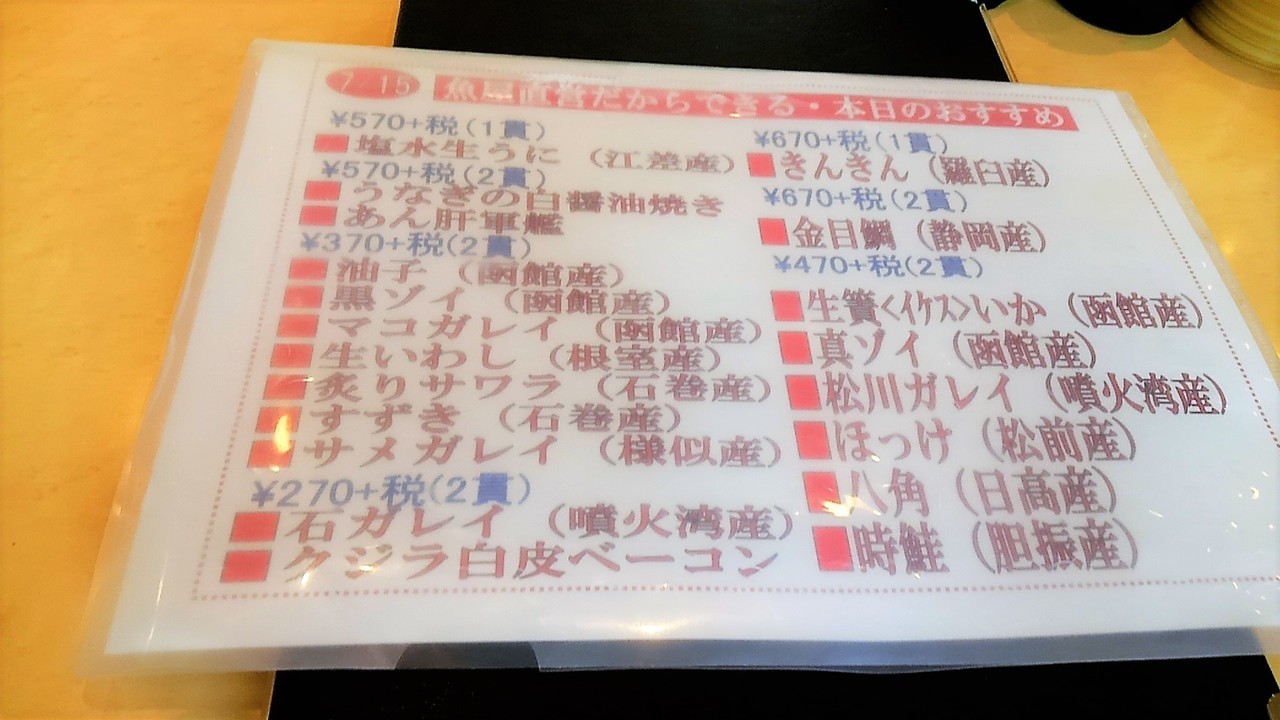 7/15
魚屋直営だからできる・本日のおすすめ
¥570+税(1貫)
■塩水生うに (江差産)
¥570+税(2貫)
■うなぎの白醤油焼き
■あん肝軍艦
¥370+税(2貫)
■油子 (函館産)
■黒ゾイ (函館産)
■マコガレイ (函館産)
■生いわし (根室産)
■炙りサワラ (石巻産)
■すずき (石巻産)
■サメガレイ (様似産)
¥270+税(2貫)
■石ガレイ (噴火湾産)
■クジラ白皮ベーコン
¥670+税(1貫)
■きんきん (羅臼産)
¥670+税(2貫)
■金目鯛 (静岡産)
¥470+税(2貫)
■生簀<イケス>いか (函館産)
■真ゾイ (函館産)
■松川ガレイ (噴火湾産)
■ほっけ (松前産)
■八角 (日高産)
■時鮭 (胆振産)